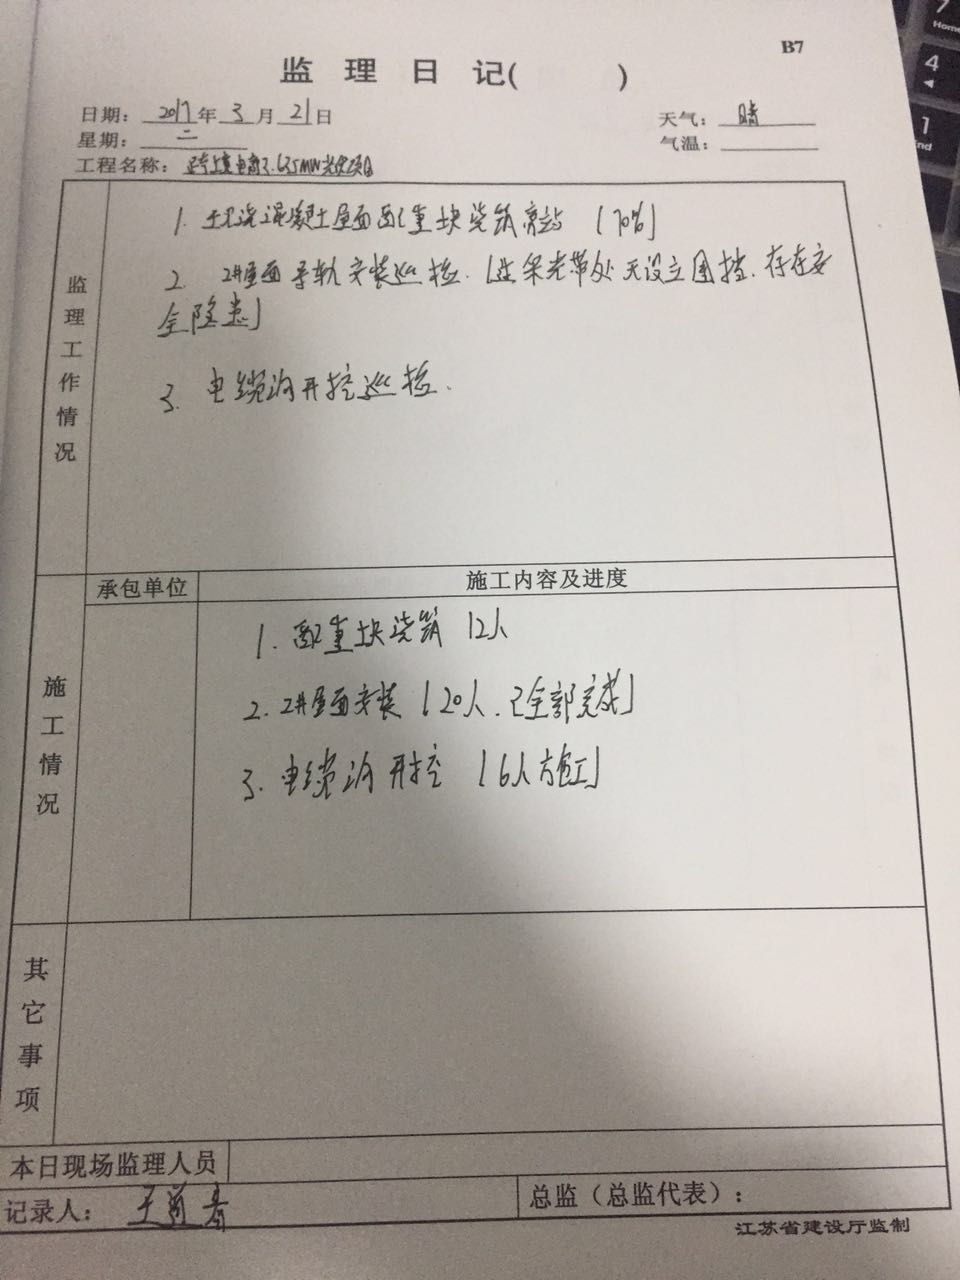 B7
监 理 日 记( )
日期： 2017年 3 月 21日
天气： 晴
星期： 二
气温：
工程名称： 3.635MW光伏项目
监理工作情况
1. 混凝土屋面配重块浇筑旁站（70%）
2. 2#屋面导轨安装巡检.（在采光带处无设立围挡.存在安
全隐患）
3. 电缆沟开挖巡检.
承包单位
施工内容及进度
施工情况
1. 配重块浇筑 12人
2. 2#屋面安装（20人.已全部完成）
3. 电缆沟开挖（6人施工）
其它事项
本日现场监理人员
记录人： 王
总监（总监代表）：
江苏省建设厅监制
7
Home
4
1
End